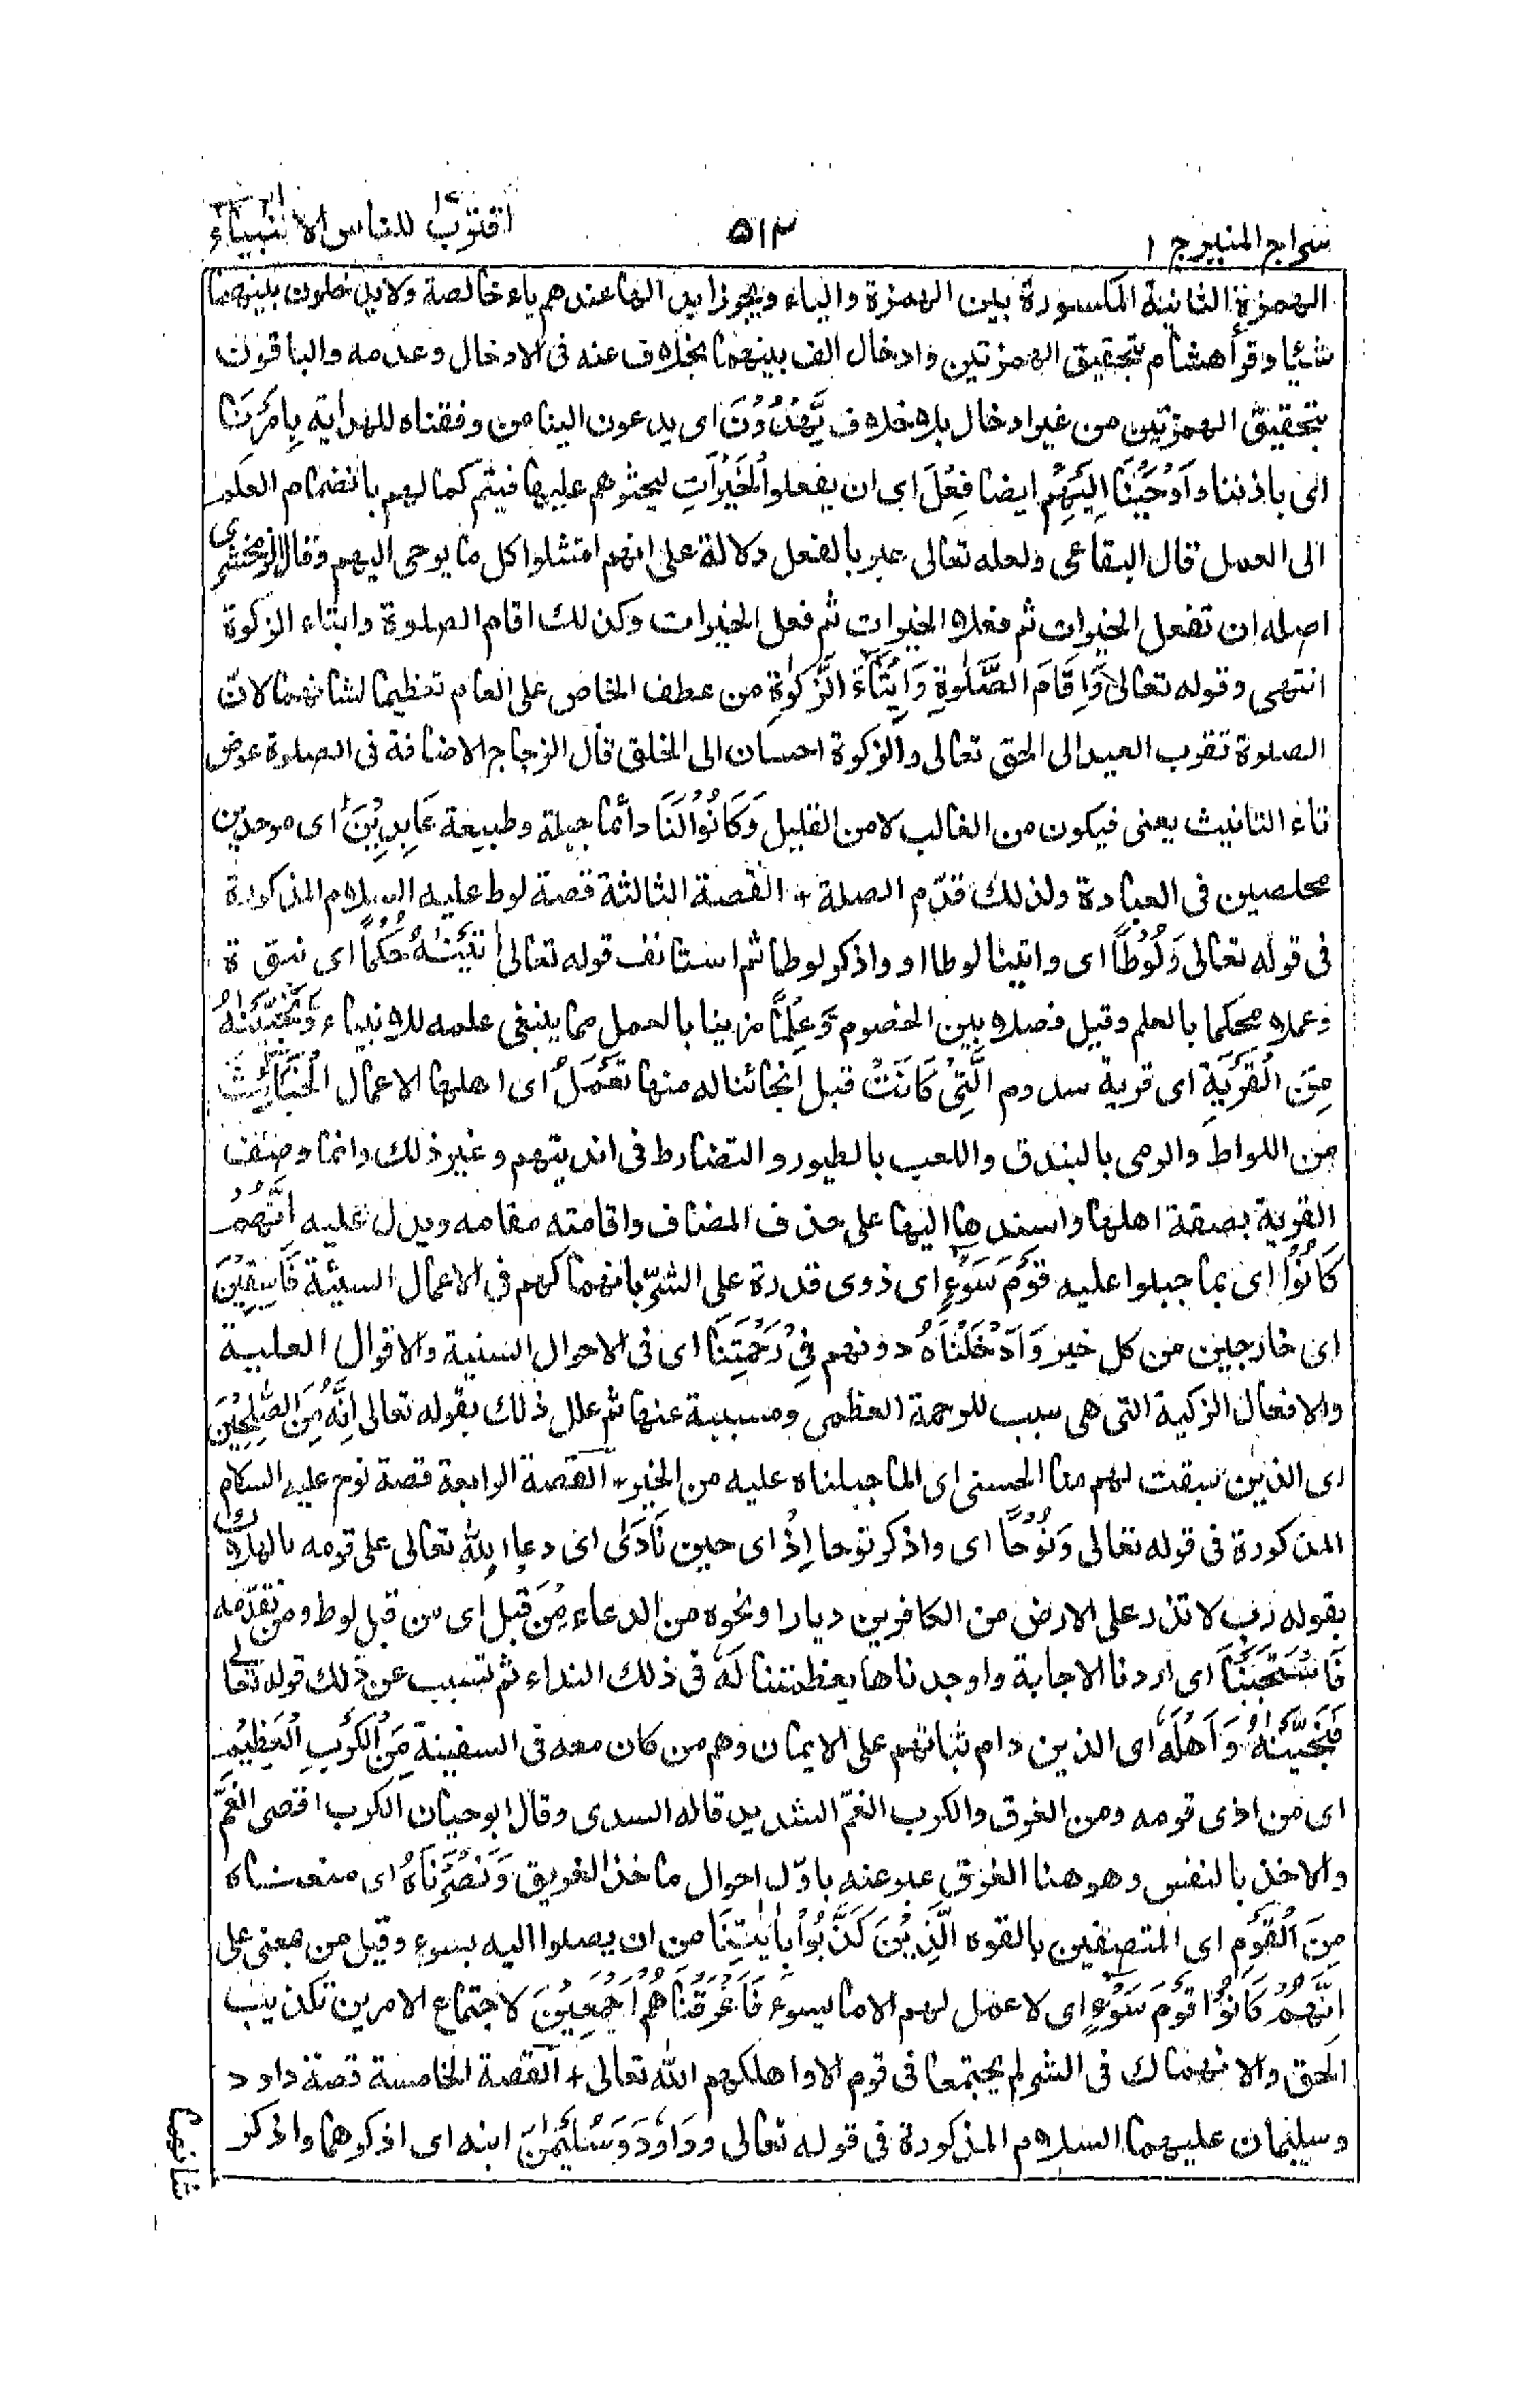 سراج المنير ج ١
٥١٣
اقترب للناس الانبياء
الهمزة الثانية المكسورة بين الهمزة والياء ويجوز ابدالها عندهم ياء خالصة ولا يدخلون بينهما
شيئا وقرأ هشام بتحقيق الهمزتين وادخال الف بينهما بخلاف عنه فى الادخال وعدمه والباقون
بتحقيق الهمزتين من غير ادخال بلا خلاف يَّهْدُوْنَ اى يدعون الينا من وفقناه للهداية بِاَمْرِنَا
اى باذننا وَاَوْحَيْنَا اِلَيْهِمْ ايضا فِعْلَ اى ان يفعلوا الْخَيْرَاتِ ليحثوهم عليها فيتم كمالهم بانضمام العلم
الى العمل قال البقاعى ولعله تعالى عبر بالفعل دلالة على انهم امتثلوا كل ما يوحى اليهم وقال الزمخشرى
اصله ان تفعل الخيرات ثم فعلا الخيرات ثم فعل الخيرات وكذلك اقام الصلوة وايتاء الزكوة
انتهى وقوله تعالى وَاِقَامَ الصَّلٰوةِ وَاِيْتَآءَ الزَّكٰوةِ من عطف الخاص على العام تعظيما لشانهما لانّ
الصلوة تقرب العبد الى الحق تعالى والزكوة احسان الى الخلق قال الزجاج الاضافة فى الصلوة عوض
تاء التانيث يعنى فيكون من الغالب لا من القليل وَكَانُوْا لَنَا دائما جبلة وطبيعة عَابِدِيْنَ اى موحدين
مخلصين فى العبادة ولذلك قدّم الصلة + القصة الثالثة قصة لوط عليه السلام المذكورة
فى قوله تعالى وَلُوْطًا اى واتينا لوطا او واذكر لوطا ثم استانف قوله تعالى اٰتَيْنٰهُ حُكْمًا اى نبوّة
وعملا محكما بالعلم وقيل فصلا بين الخصوم وَّعِلْمًا مزينا بالعمل مما ينبغى علمه للانبياء وَّنَجَّيْنٰهُ
مِنَ الْقَرْيَةِ اى قرية سدوم الَّتِيْ كَانَتْ قبل انجائنا له منها تَعْمَلُ اى اهلها الاعمال الْخَبَآئِثَ
من اللواط والرمى بالبندق واللعب بالطيور والتضارط فى انديتهم وغير ذلك وانما وصف
القرية بصفة اهلها واسندها اليها على حذف المضاف واقامته مقامه ويدل عليه اِنَّهُمْ
كَانُوْا اى بما جبلوا عليه قَوْمَ سَوْءٍ اى ذوى قدرة على الشرّ بانهماكهم فى الاعمال السيئة فَاسِقِيْنَ
اى خارجين من كل خير وَاَدْخَلْنَاهُ دونهم فِيْ رَحْمَتِنَا اى فى الاحوال السنية والاقوال العلية
والافعال الزكية التى هى سبب للرحمة العظمى ومسببة عنها ثم علل ذلك بقوله تعالى اِنَّهُ مِنَ الصّٰلِحِيْنَ
اى الذين سبقت لهم منا الحسنى اى لما جبلناه عليه من الخير + القصة الرابعة قصة نوح عليه السلام
المذكورة فى قوله تعالى وَنُوْحًا اى واذكر نوحا اِذْ اى حين نَادٰى اى دعا الله تعالى على قومه بالهلاك
بقوله رب لا تذر على الارض من الكافرين ديارا ونحوه من الدعاء مِنْ قَبْلُ اى من قبل لوط ومن تقدّمه
فَاسْتَجَبْنَا اى اردنا الاجابة واوجدناها بعظمتنا لَهٗ فى ذلك النداء ثم تسبب عن ذلك قوله تعالى
فَنَجَّيْنٰهُ وَاَهْلَهٗ اى الذين دام ثباتهم على الايمان وهم من كان معه فى السفينة مِنَ الْكَرْبِ الْعَظِيْمِ
اى من اذى قومه ومن الغرق والكرب الغمّ الشديد قاله السدى وقال ابو حيان الكرب اقصى الغمّ
والاخذ بالنفس وهو هنا الغرق عبر عنه باوّل احوال ماخذ الغريق وَنَصَرْنَاهُ اى منعناه
مِنَ الْقَوْمِ اى المتصفين بالقوة الَّذِيْنَ كَذَّبُوْا بِاٰيٰتِنَا من ان يصلوا اليه بسوء وقيل من بمعنى على
اِنَّهُمْ كَانُوْا قَوْمَ سَوْءٍ اى لا عمل لهم الا ما يسوء فَاَغْرَقْنَاهُمْ اَجْمَعِيْنَ لاجتماع الامرين تكذيب
الحق والانهماك فى الشر لم يجتمعا فى قوم الا واهلكهم الله تعالى + القصة الخامسة قصة داود
وسليمان عليهما السلام المذكورة فى قوله تعالى وَدَاوٗدَ وَسُلَيْمٰنَ ابنه اى اذكرهما واذكر
شانهما